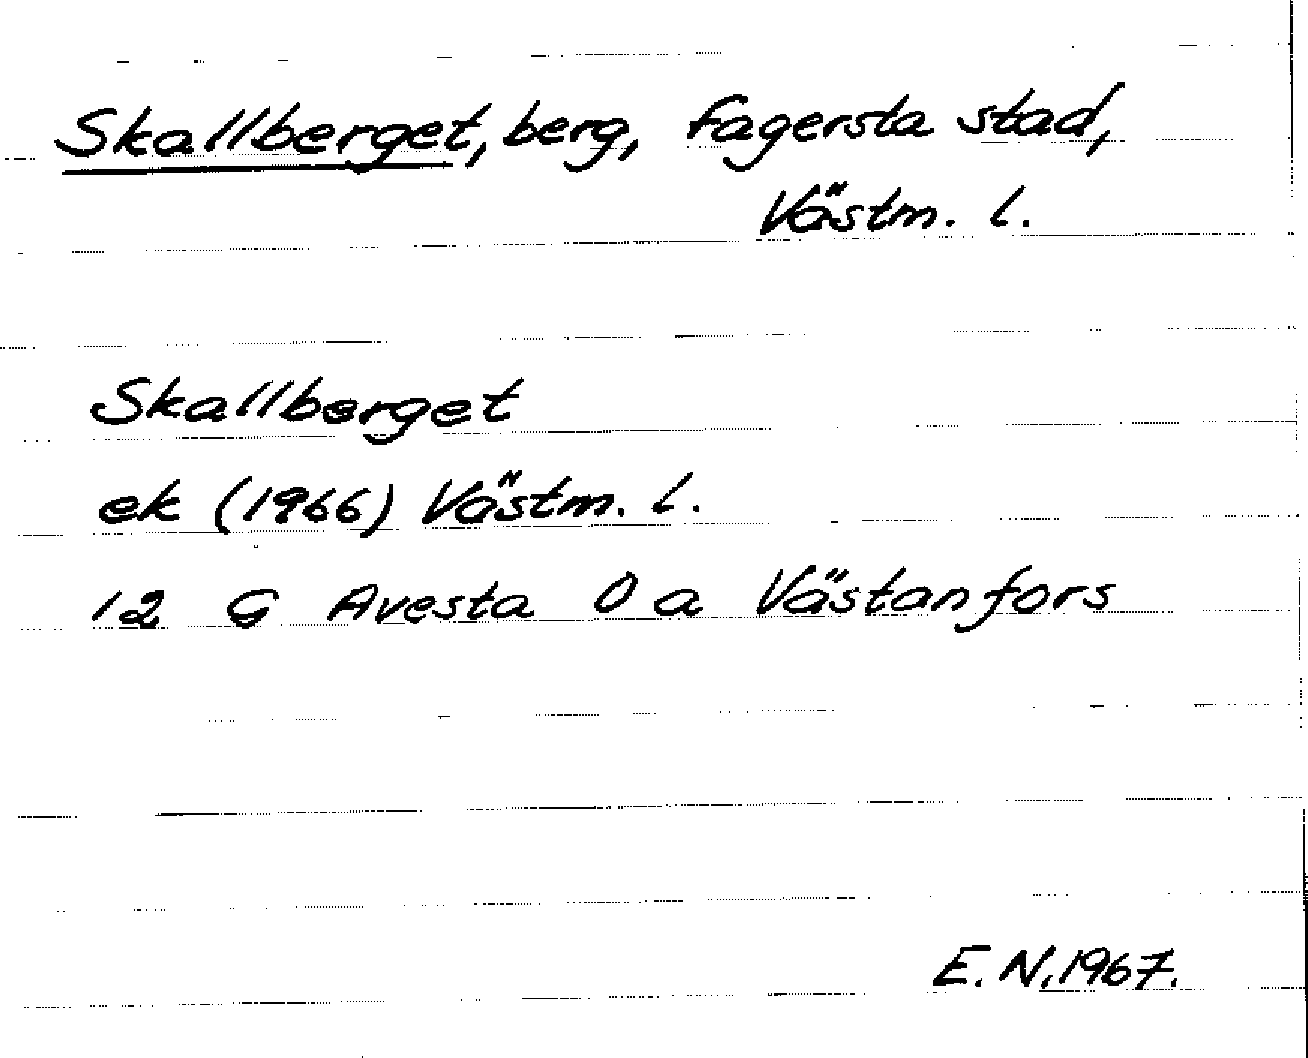 Skallberget, berg, Fagersta stad,
Västm. l.
Skallberget
ek (1966) Västm. l.
12 G Avesta 0 a Västanfors
E. N. 1967.